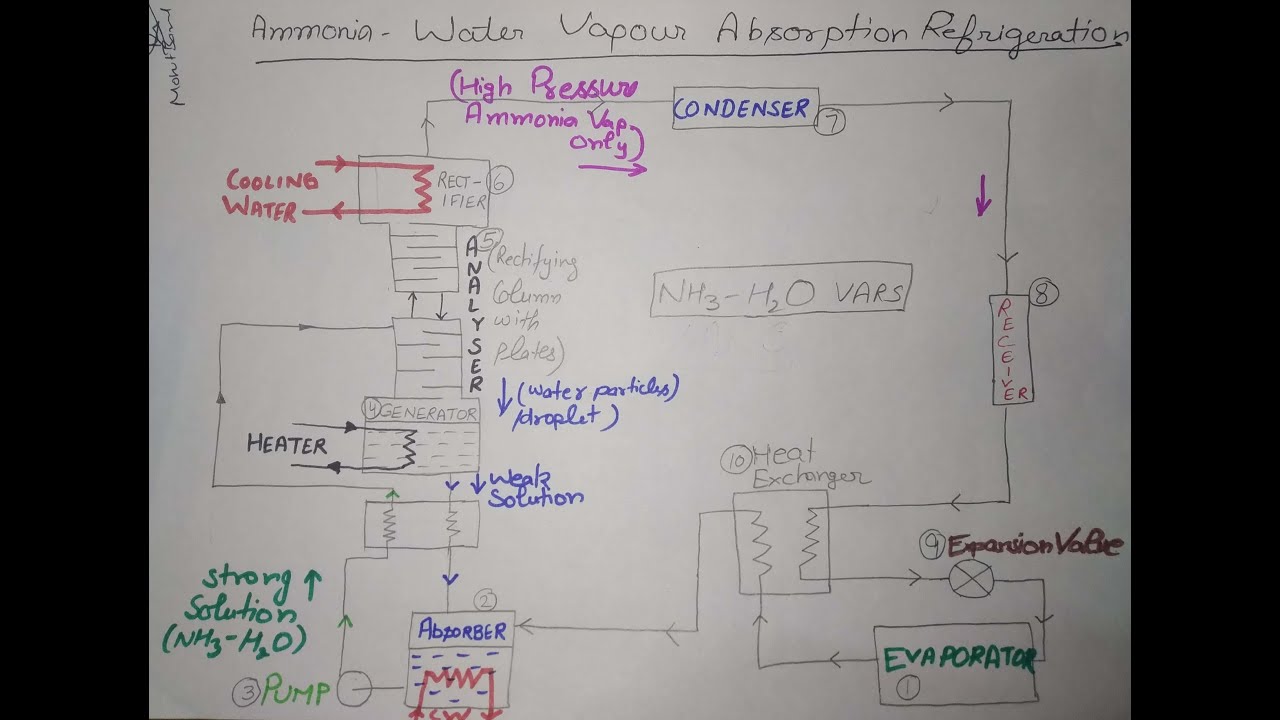 Ammonia - Water Vapour Absorption Refrigeration
(High Pressure
Ammonia Vap.
only)
CONDENSER
7
COOLING
WATER
RECT-
IFIER
6
5
ANALYSER
(Rectifying
Column
with
plates)
NH3-H2O VARS
8
RECEIVER
(water particles)
/droplet)
4
GENERATOR
HEATER
Weak
Solution
10
Heat
Exchanger
9
Expansion Valve
Strong
Solution
(NH3-H2O)
2
ABSORBER
EVAPORATOR
1
3
PUMP
CW